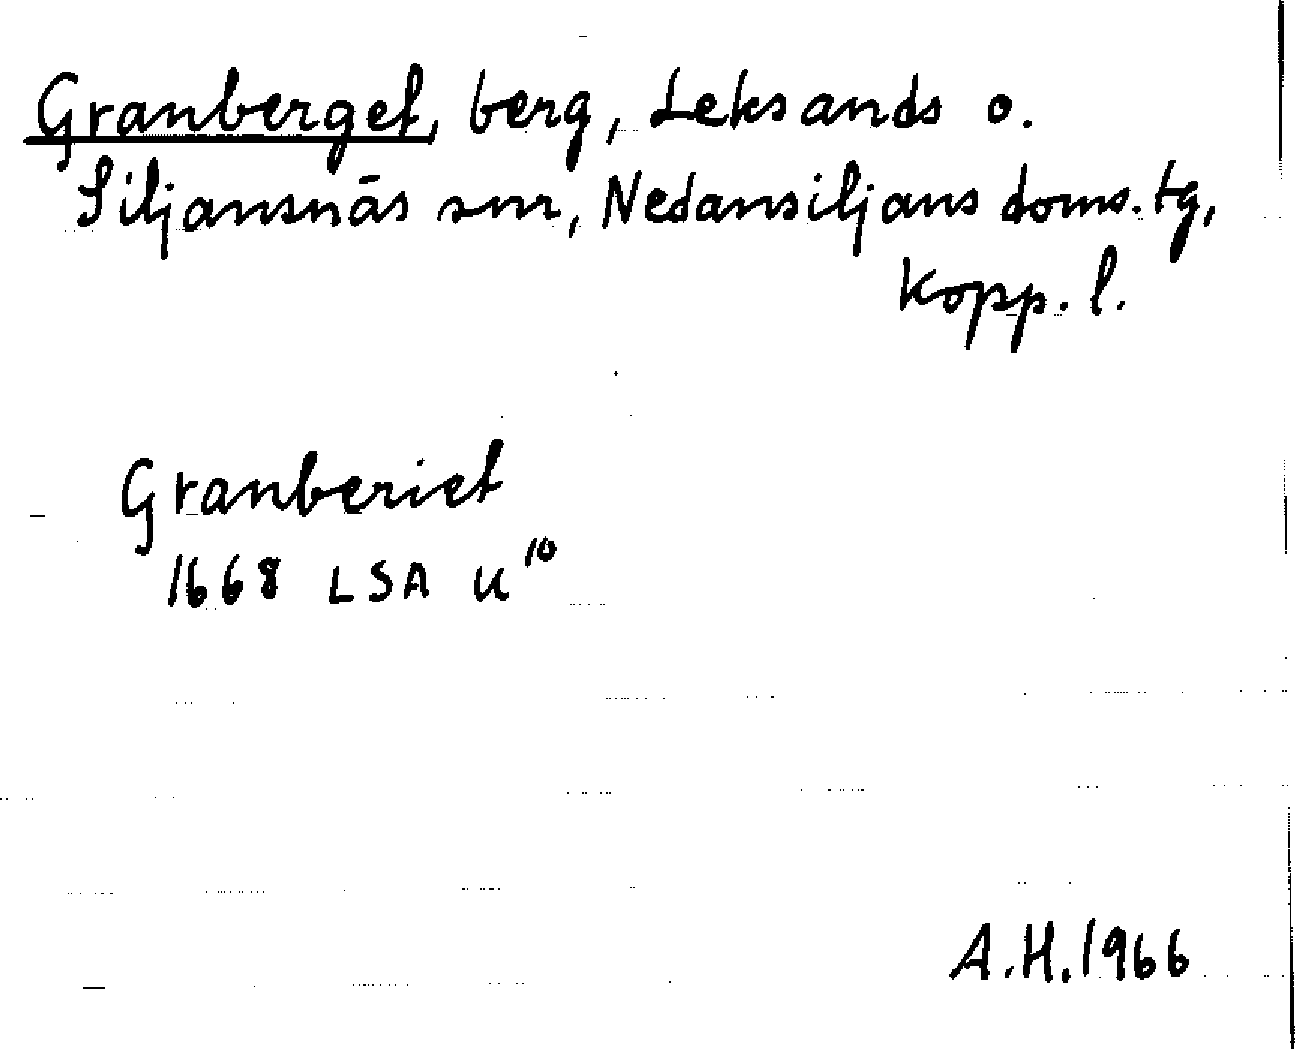 Granberget, berg, Leksands o.
Siljansnäs snr, Nedansiljans doms.tg,
Kopp. l.
Granberiet
1668 LSA U¹⁰
A.H. 1966